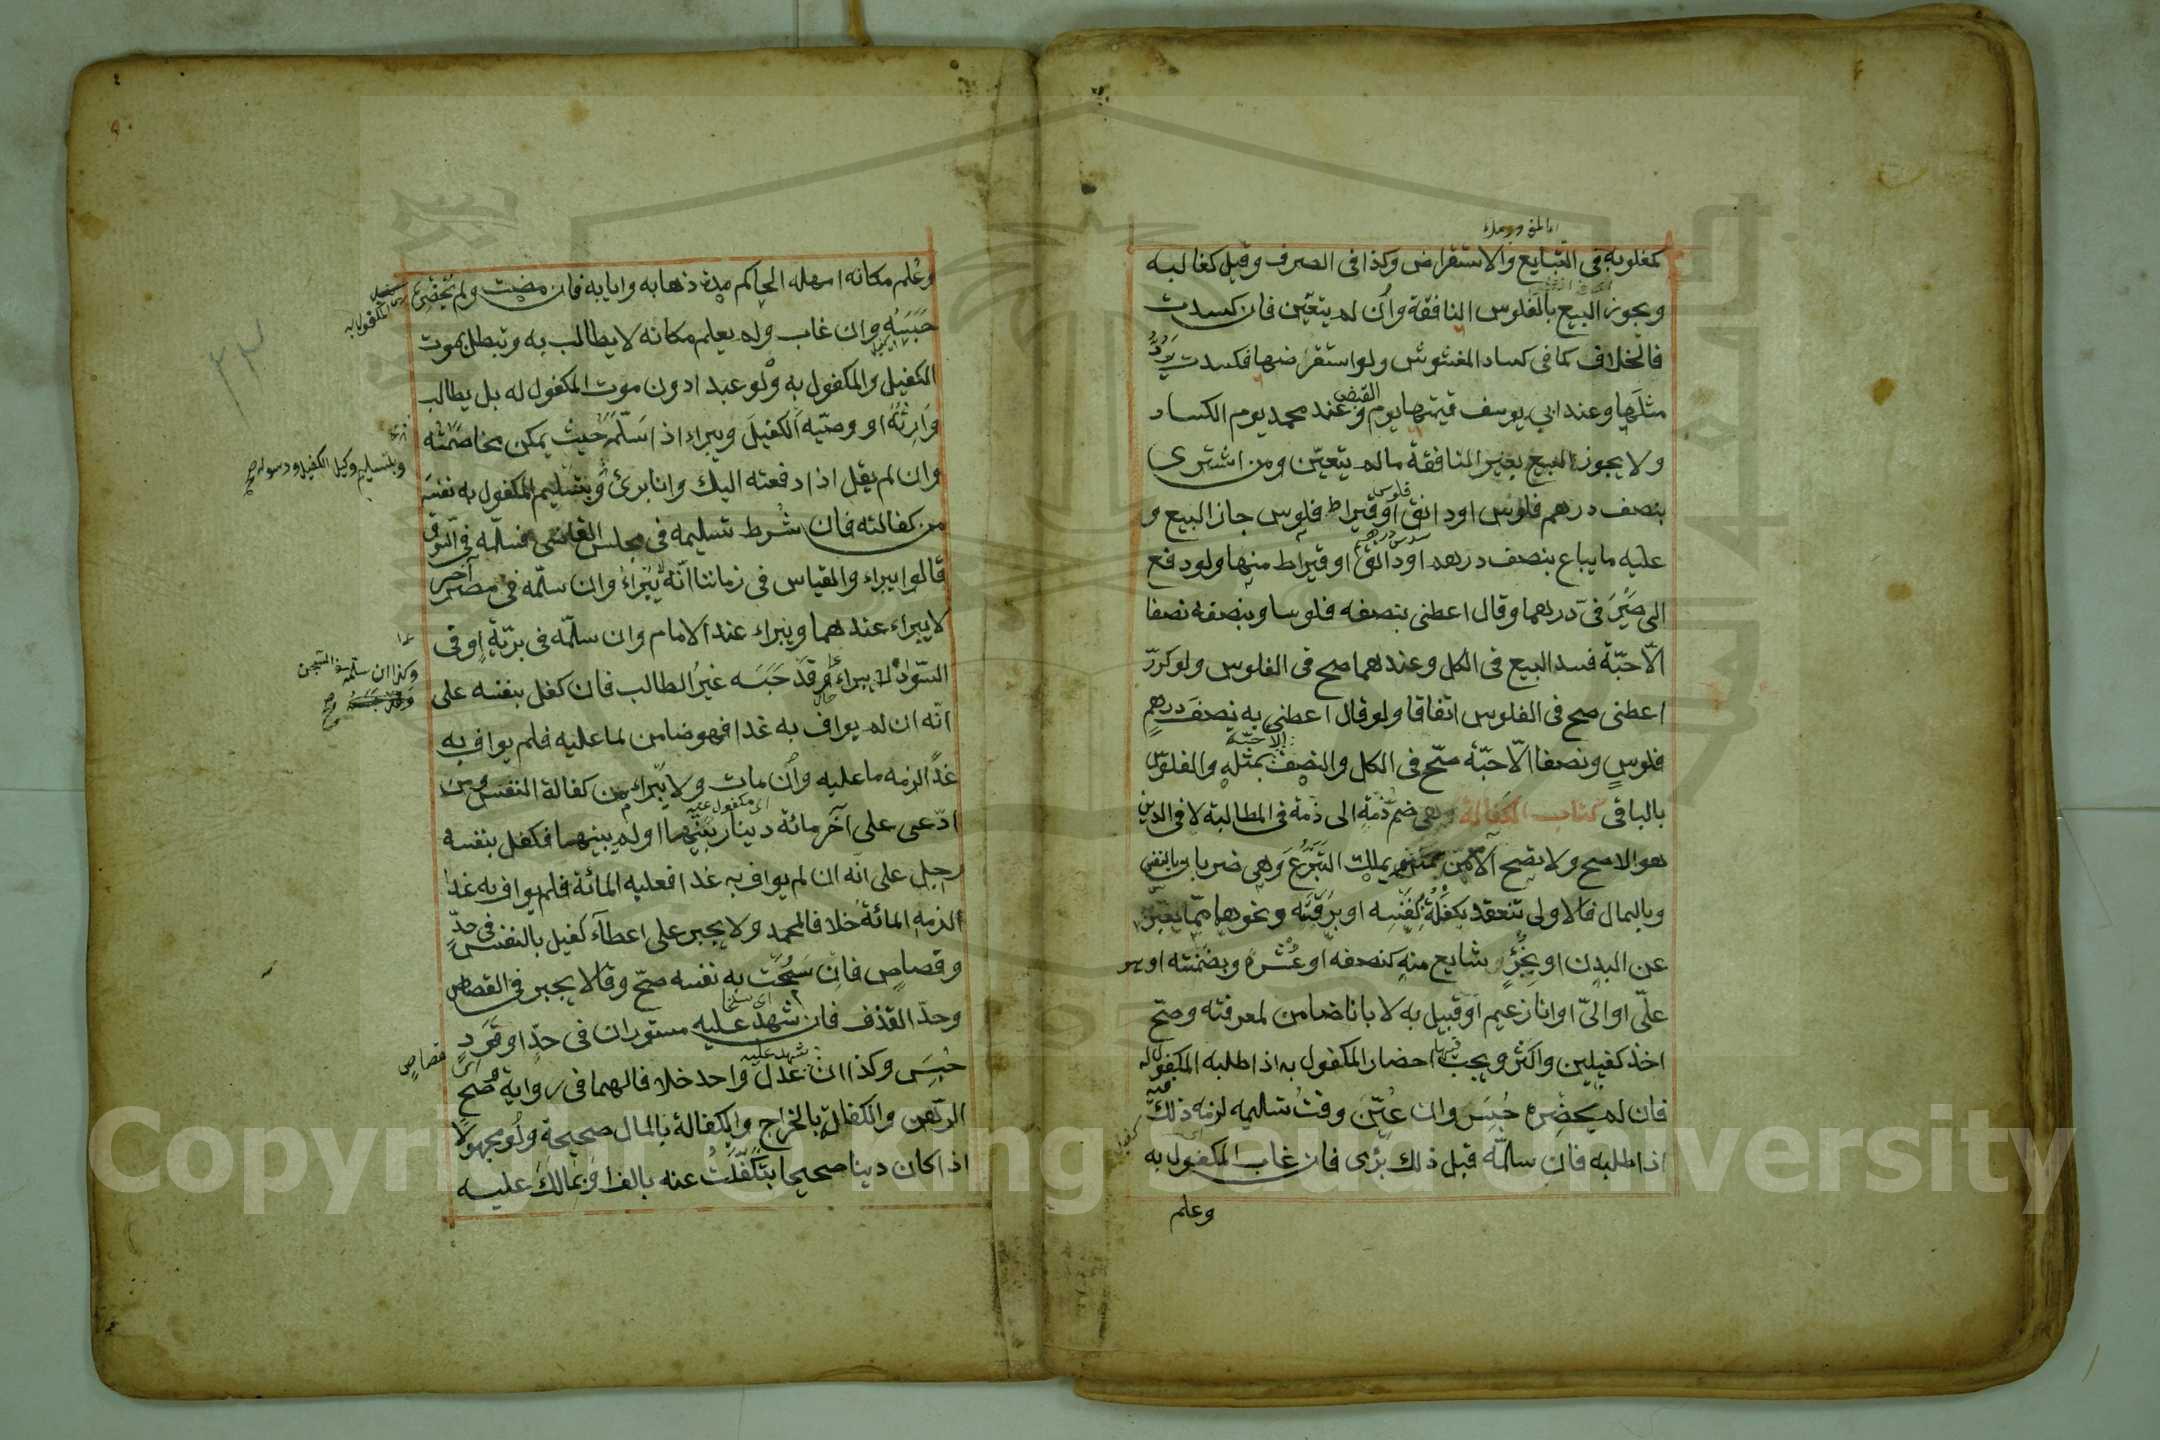 كمغلوبه فى التبايع والاستقراض وكذا فى الصرف وقيل كغالبه
ويجوز البيع بالفلوس النافقة وان لم يتعين فان كسدت
فالخلاف كما فى كساد المغشوش ولو استقرضها فكسدت يَرُدُّ
مثلها وعند ابي يوسف قيمتها يوم القبض وعند محمد يوم الكساد
ولا يجوز البيع بغير النافقة ما لم يتعين ومن اشترى
بنصف درهم فلوس او دانق فلوس او قيراط فلوس جاز البيع و
عليه ما يباع بنصف درهم او دانق او قيراط منها ولو دفع
الى صَيْرَفىّ درهما وقال اعطنى بنصفه فلوسا وبنصفه نصفا
الّا حبّة فسد البيع فى الكل وعندهما صح فى الفلوس ولو كرر
اعطنى صح فى الفلوس اتفاقا ولو قال اعطنى به نصف درهمٍ
فلوسٍ ونصفا الّا حبّة صحّ فى الكل والنصف الا حبّة بمثله والفلوس
بالباقى كتاب الكفالة وهى ضم ذمّة الى ذمة فى المطالبة لا فى الدين
هو الاصح ولا تصح الّا ممن يملك التبرّع وهى ضربان بالنفس
وبالمال فالاولى تنعقد بكفلت بنفسه او برقبته ونحوها ممّا يعبّر به
عن البدن او بجزءٍ شايع منه كنصفه او عُشْرِه وبضمنته او هو
علىّ او الىّ او انا زعيم او قبيل به لا بانا ضامن لمعرفته وصحّ
اخذ كفيلين واكثر ويجب فيها احضار المكفول به اذا طلبه المكفول له
فان لم يحضره حُبِسَ وان عُيّن وقتُ تسليمه لزمه ذلك فيه
اذا طلبه فان سلّمه قبل ذلك برئ فان غاب المكفول به
وعلم
وعُلم مكانه امهله الحاكم مدة ذهابه وايابه فان مضت ولم يحضره
حَبَسَه وان غاب ولم يعلم مكانه لا يطالب به وتبطل بموت
الكفيل والمكفول به ولو عبدا دون موت المكفول له بل يطالب
وَارِثُهُ او وصيّه الكفيلَ ويبراء اذا سَلّمه حيث يمكن مخاصمته
وان لم يقل اذا دفعته اليك وانا برئ وبتسليم المكفول به نفسه
وبتسليم وكيل الكفيل ورسوله صح
من كفالته فان شُرط تسليمه فى مجلس القاضى فسلّمه فى السّوق
قالوا يبراء والمقياس فى زماننا انّه لا يَبْراءُ وان سلّمه فى مصر آخر
لا يبراء عندهما ويبراء عند الامام وان سلّمه فى برّيّة او فى
السّواد لا يبراء وقد حَبَسَه غيرُ الطالب فان كفل بنفسه على
وكذا ان سلّمه فى السّجن
انّه ان لم يواف به غدا فهو ضامن لما عليه فلم يواف به
غدًا لزمه ما عليه وان مات ولا يبراء من كفالة النفس ومن
ادّعى على آخر مائة دينار بيّنها او لم يبينها فكفل بنفسه
رجل على انّه ان لم يواف به غدا فعليه المائة فلم يواف به غدا
لزمه المائة خلافا لمحمد ولا يجبر على اعطاء كفيل بالنفس فى حدٍّ
وقصاص فان سمحت به نفسه صحّ وقالا يجبر فى القصاص
وحدّ القذف فان شهد عليه مستوران فى حدٍّ او قَوَدٍ
قصاص
حُبِسَ وكذا ان شهد عليه عدل واحد خلافا لهما فى رواية وصح
الرّهن والكفالة بالخراج والكفالة بالمال صحيحة ولو مجهولًا
اذا كان دينا صحيحا بتكفّلتُ عنه بالف او بمالك عليه